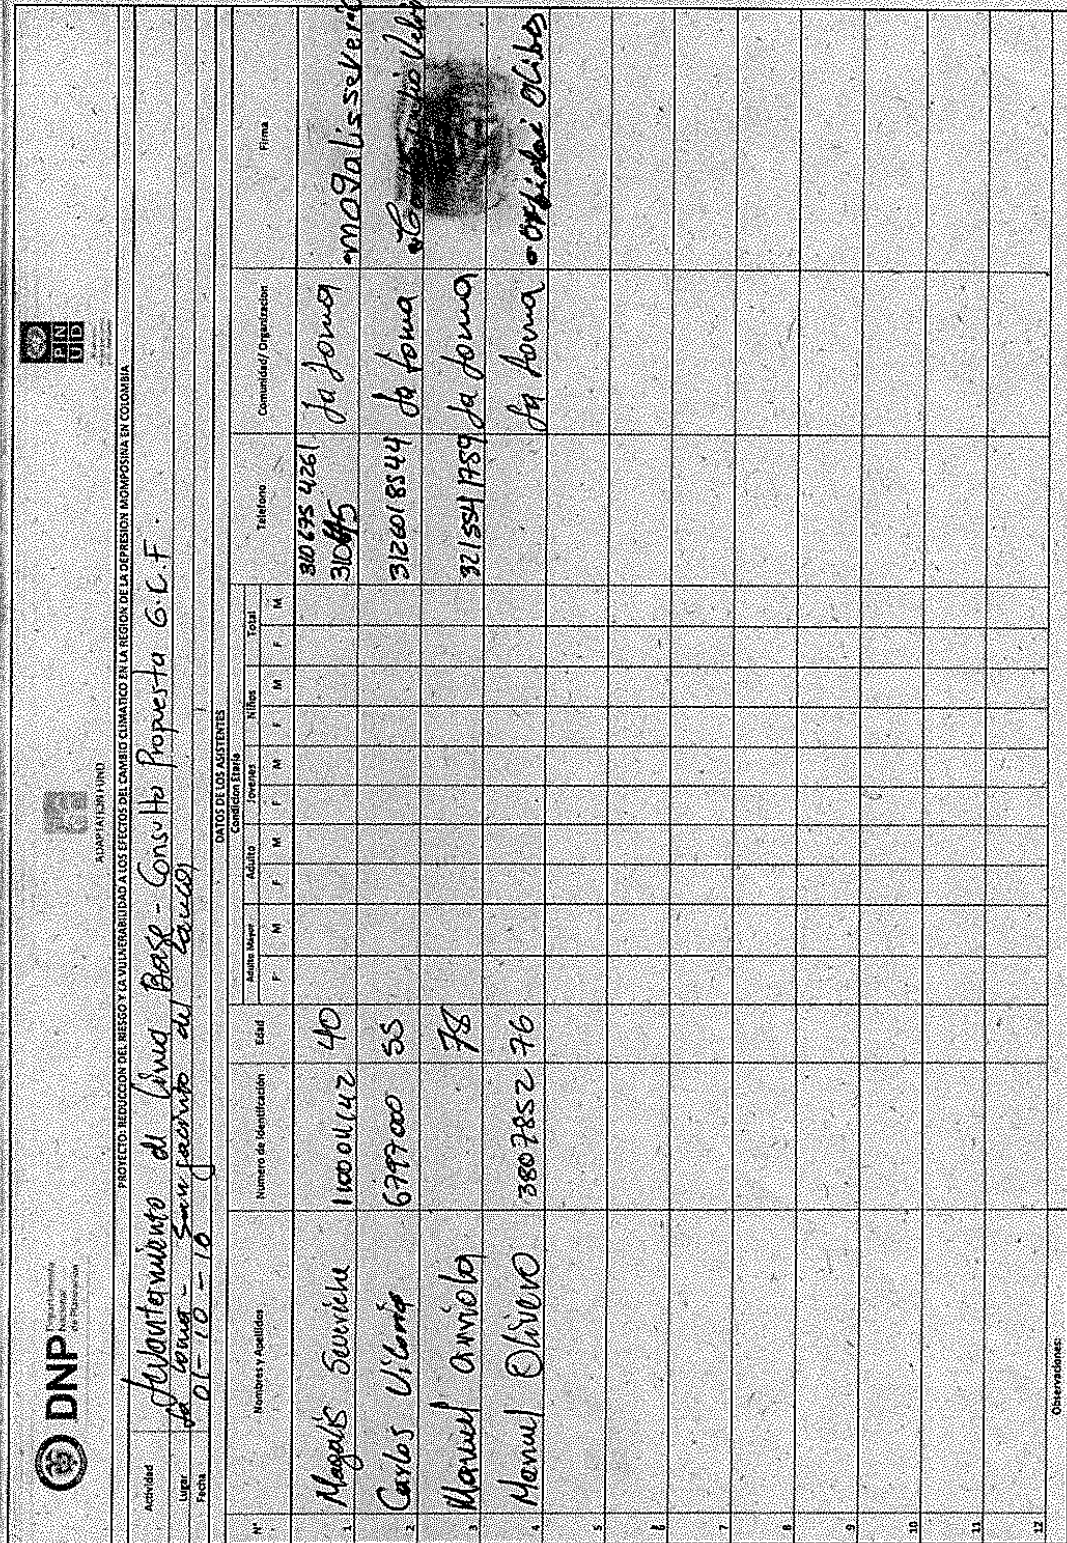 DNP Departamento
Nacional
de Planeación
ADAPTATION FUND
PN
UD
PROYECTO: REDUCCION DEL RIESGO Y LA VULNERABILIDAD A LOS EFECTOS DEL CAMBIO CLIMATICO EN LA REGION DE LA DEPRESION MOMPOSINA EN COLOMBIA
Actividad Levantamiento de Linea Base - Consulta Propuesta G.C.F.
Lugar La Loma - San Jacinto del Cauca
Fecha 01-10-16
DATOS DE LOS ASISTENTES
Nº Nombres y Apellidos Numero de Identificación Edad Condicion Etaria Telefono Comunidad/ Organizacion Firma
Adulto Mayor Adulto Jovenes Niños Total
F M F M F M F M F M
1 Magalis Severiche 40 310 675 4261 La Loma magalis severic
2 Carlos Viloria 6797000 55 3126018544 La Loma
3 Manuel Arriola 78 321 554 1759 La Loma
4 Manuel Olivero 3807852 76 La Loma
5
6
7
8
9
10
11
12
Observaciones: